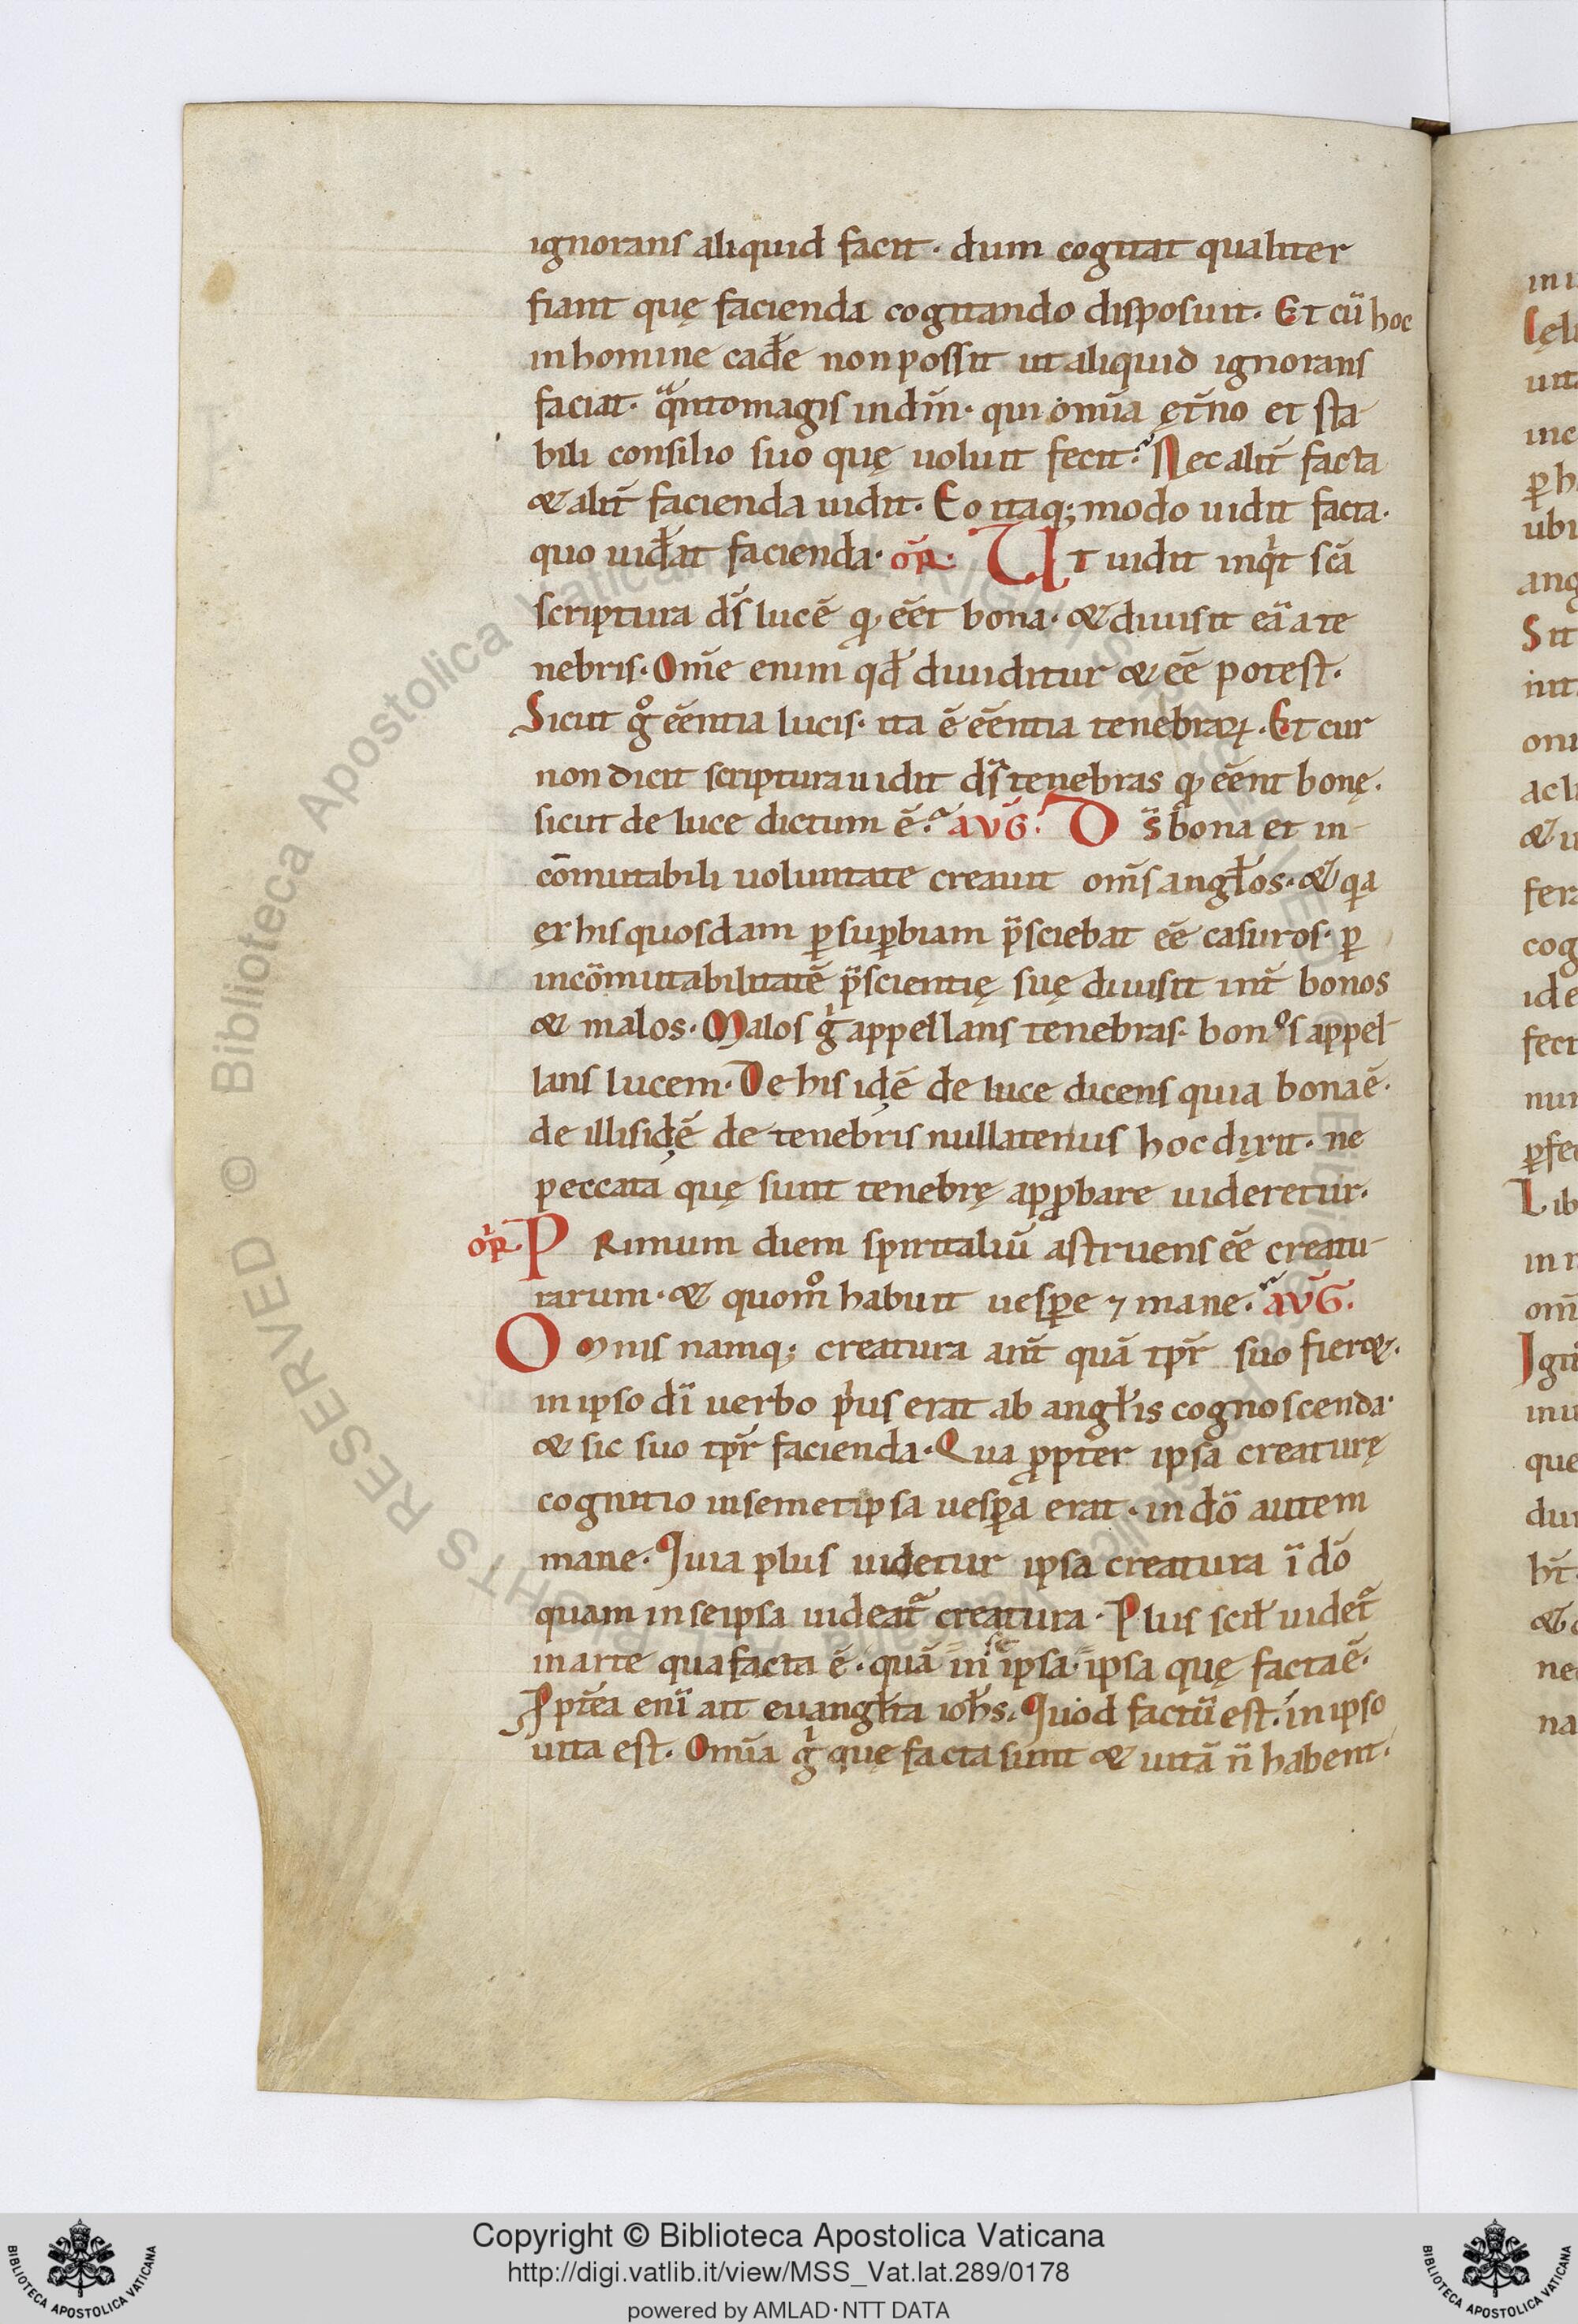 ignorans aliquid facit. dum cogitat qualiter
fiant quę facienda cogitando disposuit. Et cū hoc
in homine cadẽe non possit ut aliquid ignorans
faciat. qᵃntomagis in dm̄. qui om̄ia ęt̄no et sta-
bili consilio suo quę uoluit fecit. Nec alit̄ facta
& alit̄ facienda uidit. Eo itaq; modo uidit facta.
quo uid̄at facienda. or̄. Ut uidit inqⁱt sc̄a
scriptura ds̄ lucē qđ eēt bona. & diuisit eā a te
nebris. Om̄e enim qđ diuiditur & eē potest.
Sicut gᵒ eēntia lucis. ita ē eēntia tenebraꝝ. Et cur
non dicit scriptura uidit ds̄ tenebras qđ eēnt bonę.
sicut de luce dictum ē. AVḠ. Ds̄ bona et in-
cōmutabili uoluntate creauit om̄s angłos. & qa
ex his quosdam ꝑ suꝑbiam p̄sciebat eē casuros. ꝑ
incōmutabilitatē p̄scientię suę diuisit int̄ bonos
& malos. Malos gⁱ appellans tenebras. bonos appel-
lans lucem. De his idē de luce dicens quia bona ē.
de illis idē de tenebris nullatenus hoc dixit. ne
peccata quę sunt tenebrę apꝓbare uideretur.
or̄. PRimum diem spiritaliū astruens eē creatu-
rarum. & quomᵒ habuit uesꝑe ⁊ mane. AVḠ.
OMnis namq; creatura ant̄ quā tpr̄ suo fier&.
in ipso dī uerbo pⁱus erat ab angłis cognoscenda.
& sic suo tpr̄ facienda. Qua ꝓpter ipsa creaturę
cognitio in semetipsa uesꝑa erat. in dō autem
mane. Quia plus uidetur ipsa creatura ī dō
quam in seipsa uideat̄ creatura. Plus scił uidet̄
in arte qua facta ē. quā in se ipsa. ipsa quę facta ē.
Ꝓpt̄ea enī ait euangłta ioħs. Quod factū est. in ipso
uita est. Om̄ia gⁱ quę facta sunt & uitā n̄ habent.
Copyright © Biblioteca Apostolica Vaticana
http://digi.vatlib.it/view/MSS_Vat.lat.289/0178
powered by AMLAD·NTT DATA